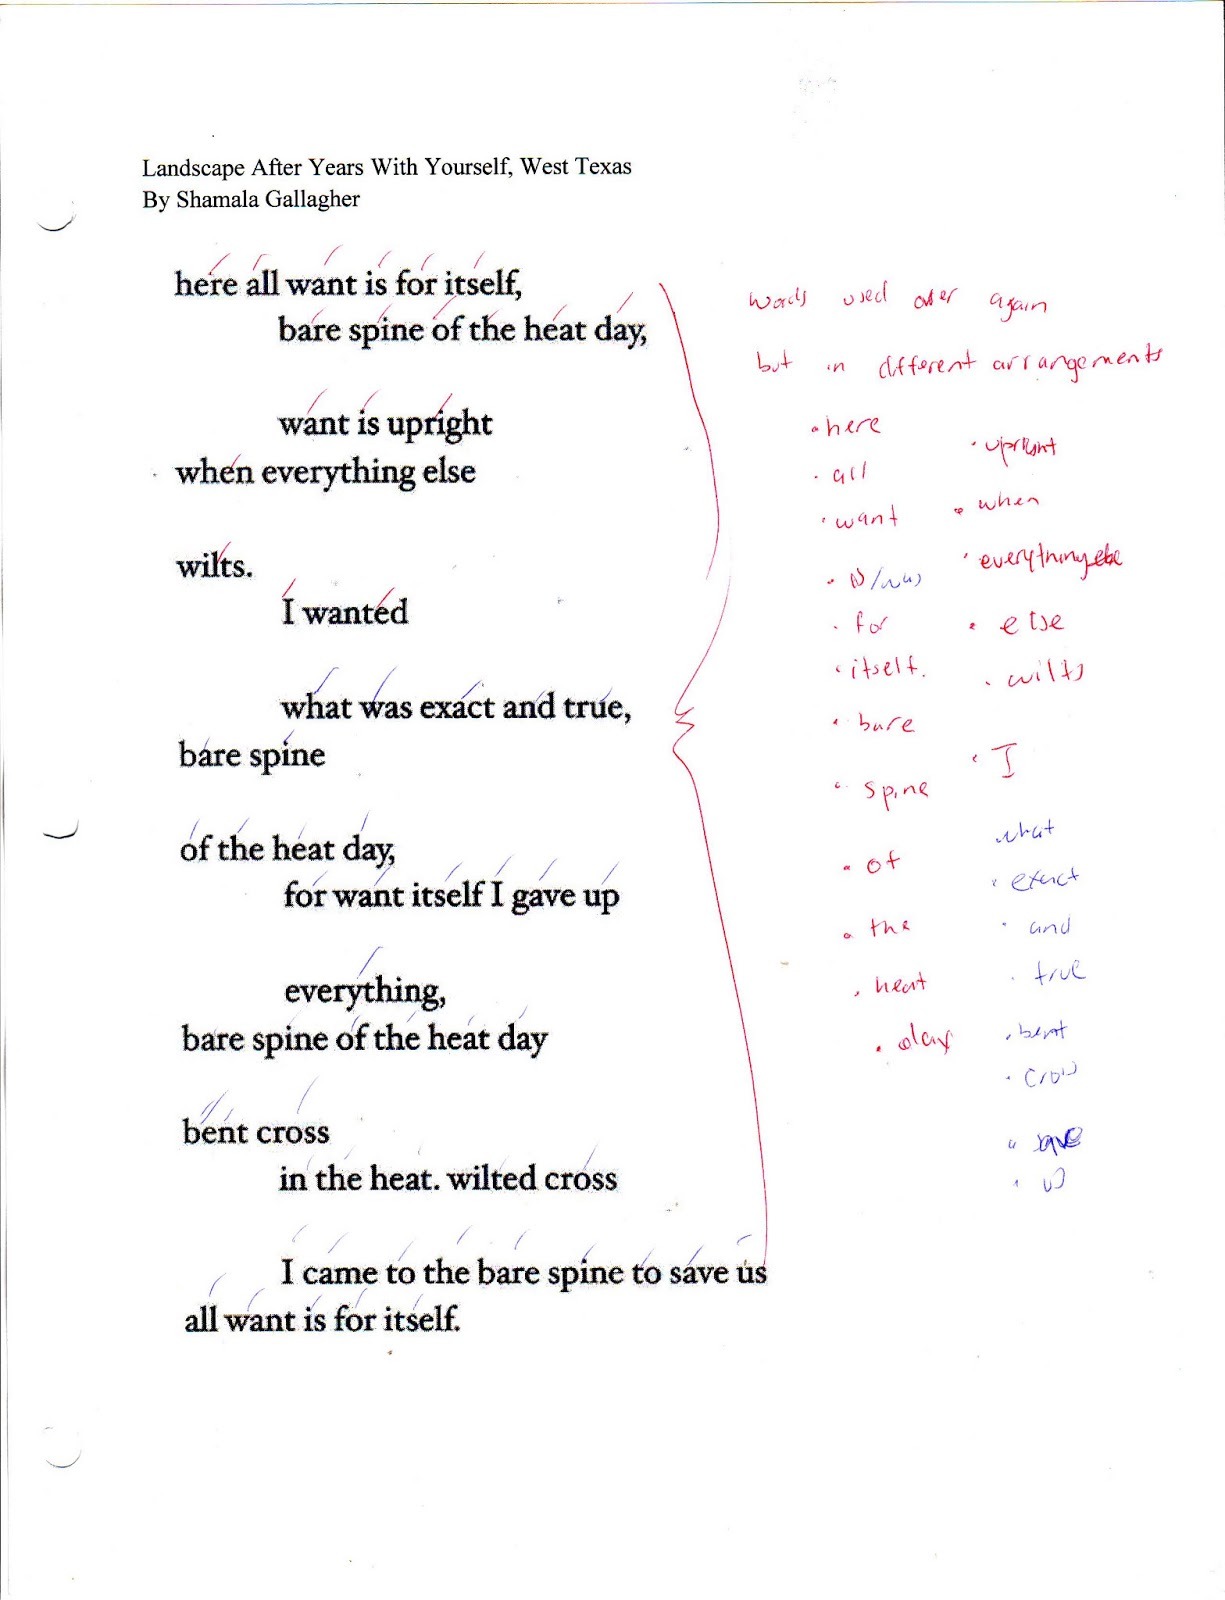 Landscape After Years With Yourself, West Texas
By Shamala Gallagher
here all want is for itself,
bare spine of the heat day,
want is upright
when everything else
wilts.
I wanted
what was exact and true,
bare spine
of the heat day,
for want itself I gave up
everything,
bare spine of the heat day
bent cross
in the heat. wilted cross
I came to the bare spine to save us
all want is for itself.
words used over again
but in different arrangements
• here
• all
• want
• is/was
• for
• itself.
• bare
• spine
• of
• the
• heat
• day
• upright
• when
• everything
• else
• wilts
• I
• what
• exact
• and
• true
• bent
• cross
• save
• us